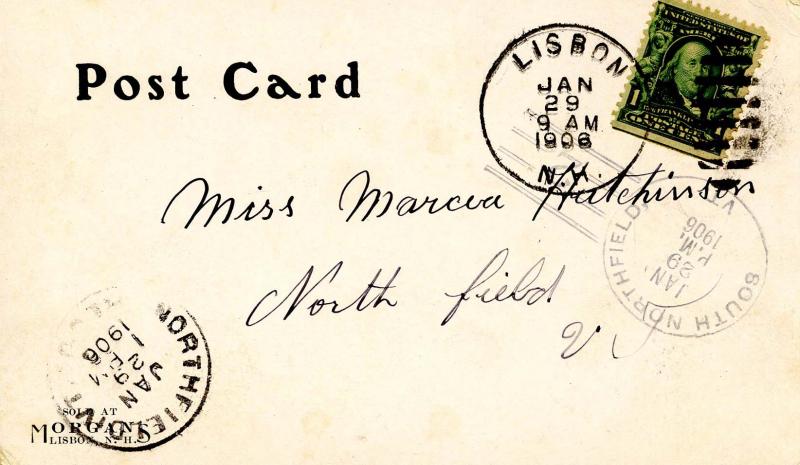 Post Card
LISBON
JAN
29
9 AM
1906
N.H.
UNITED STATES OF
AMERICA
FRANKLIN
POSTAGE
ONE CENT
Miss Marcia Hutchinson
North field
Vt
SOUTH NORTHFIELD,
VT.
JAN
29
P.M.
1906
NORTHFIELD
JAN
1906
SOLD AT
MORGANS
LISBON, N. H.